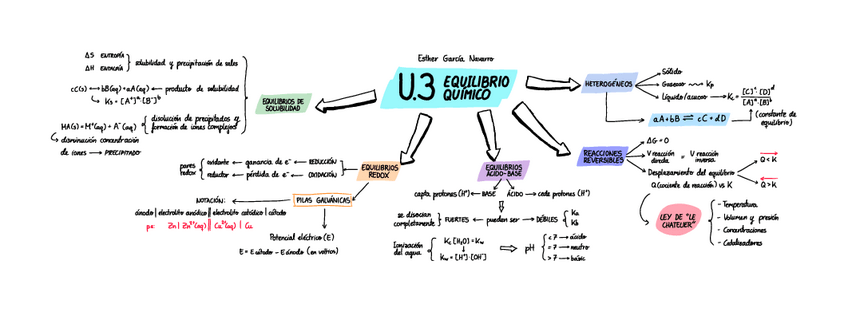 Esther García Navarro
U.3 EQUILIBRIO QUÍMICO
EQUILIBRIOS DE SOLUBILIDAD
ΔS ENTROPÍA
ΔH ENTALPÍA
solubilidad y precipitación de sales
cC(s) ⟷ bB(aq) + aA(aq) ← producto de solubilidad
Ks = [A⁺]ᵃ·[B⁻]ᵇ
MA(s) = M⁺(aq) + A⁻(aq)
disolución de precipitados y formación de iones complejos
disminución concentración
de iones → PRECIPITADO
EQUILIBRIOS REDOX
pares redox
oxidante ← ganancia de e⁻ ← REDUCCIÓN
reductor ← pérdida de e⁻ ← OXIDACIÓN
PILAS GALVÁNICAS
NOTACIÓN:
ánodo | electrolito anódico || electrolito catódico | cátodo
Zn | Zn²⁺(aq) || Cu²⁺(aq) | Cu
Potencial eléctrico (E)
E = E cátodo - E ánodo (en voltios)
EQUILIBRIOS ÁCIDO-BASE
capta protones (H⁺) ← BASE
ÁCIDO → cede protones (H⁺)
se disocian completamente
FUERTES ← pueden ser → DÉBILES
Ka
Kb
Ionización del agua
Kc [H₂O] = Kw
Kw = [H⁺]·[OH⁻]
pH
< 7 → ácido
= 7 → neutro
> 7 → básic
HETEROGÉNEOS
Sólido
Gaseoso → Kp
Líquido/acuoso → Kc = [C]ᶜ·[D]ᵈ / [A]ᵃ·[B]ᵇ
aA + bB ⇌ cC + dD
(constante de equilibrio)
REACCIONES REVERSIBLES
ΔG = 0
V reacción directa = V reacción inversa
Desplazamiento del equilibrio
Q (cociente de reacción) vs K
Q < K
Q > K
LEY DE "LE CHATELIER"
- Temperatura
- Volumen y presión
- Concentraciones
- Catalizadores